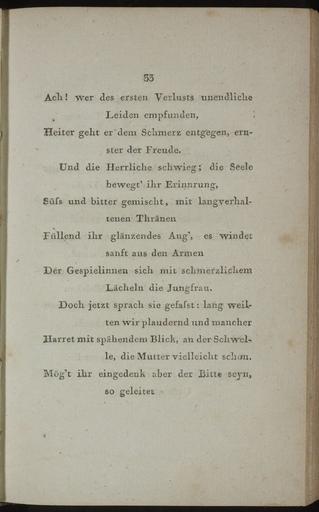 33
Ach! wer des ersten Verlusts unendliche
Leiden empfunden,
Heiter geht er dem Schmerz entgegen, ern-
ster der Freude.
Und die Herrliche schwieg; die Seele
bewegt' ihr Erinnrung,
Süſs und bitter gemischt, mit langverhal-
tenen Thränen
Füllend ihr glänzendes Aug', es windet
sanft aus den Armen
Der Gespielinnen sich mit schmerzlichem
Lächeln die Jungfrau.
Doch jetzt sprach sie gefaſst: lang weil-
ten wir plaudernd und mancher
Harret mit spähendem Blick, an der Schwel-
le, die Mutter vielleicht schon.
Mög't ihr eingedenk aber der Bitte seyn,
so geleitet